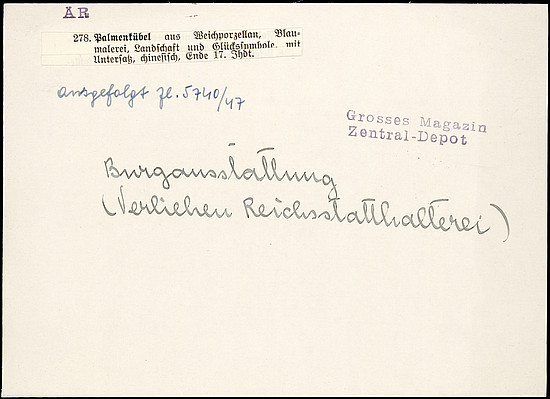 AR
278. Palmenkübel aus Weichporzellan, Blau-
malerei, Landschaft und Glückssymbole, mit
Untersatz, chinesisch, Ende 17. Jhdt.
ausgefolgt Zl. 5740/47
Grosses Magazin
Zentral-Depot
Burgausstattung
(Verliehen Reichsstatthalterei)